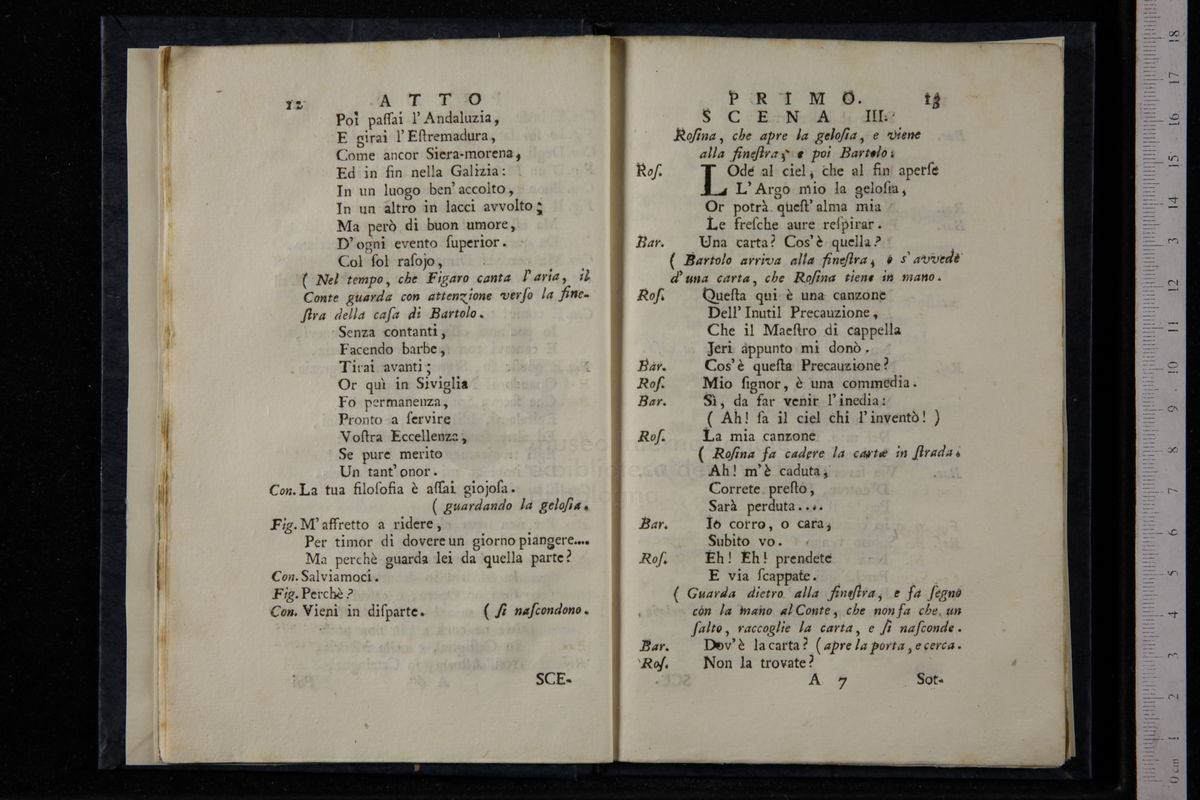 12
ATTO
Poi paſſai l'Andaluzia,
E girai l'Eſtremadura,
Come ancor Siera-morena,
Ed in fin nella Galizia:
In un luogo ben' accolto,
In un altro in lacci avvolto;
Ma però di buon umore,
D'ogni evento ſuperior.
Col ſol raſojo,
( Nel tempo, che Figaro canta l'aria, il
Conte guarda con attenzione verſo la fine-
ſtra della caſa di Bartolo.
Senza contanti,
Facendo barbe,
Tirai avanti;
Or quì in Siviglia
Fo permanenza,
Pronto a ſervire
Voſtra Eccellenza,
Se pure merito
Un tant' onor.
Con. La tua filoſofia è aſſai giojoſa.
( guardando la geloſia.
Fig. M'affretto a ridere,
Per timor di dovere un giorno piangere....
Ma perchè guarda lei da quella parte?
Con. Salviamoci.
Fig. Perchè?
Con. Vieni in diſparte. ( ſi naſcondono.
SCE-
PRIMO. 13
SCENA III.
Roſina, che apre la geloſia, e viene
alla fineſtra, e poi Bartolo.
Roſ. LOde al ciel, che al fin aperſe
L'Argo mio la geloſia,
Or potrà queſt' alma mia
Le freſche aure reſpirar.
Bar. Una carta? Cos'è quella?
( Bartolo arriva alla fineſtra, e s'avvede
d'una carta, che Roſina tiene in mano.
Roſ. Queſta qui è una canzone
Dell' Inutil Precauzione,
Che il Maeſtro di cappella
Jeri appunto mi donò.
Bar. Cos'è queſta Precauzione?
Roſ. Mio ſignor, è una commedia.
Bar. Sì, da far venir l'inedia:
( Ah! ſa il ciel chi l'inventò! )
Roſ. La mia canzone
( Roſina fa cadere la carta in ſtrada.
Ah! m'è caduta,
Correte preſto,
Sarà perduta....
Bar. Io corro, o cara,
Subito vo.
Roſ. Eh! Eh! prendete
E via ſcappate.
( Guarda dietro alla fineſtra, e fa ſegno
con la mano al Conte, che non fa che un
ſalto, raccoglie la carta, e ſi naſconde.
Bar. Dov'è la carta? (apre la porta, e cerca.
Roſ. Non la trovate?
A 7 Sot-